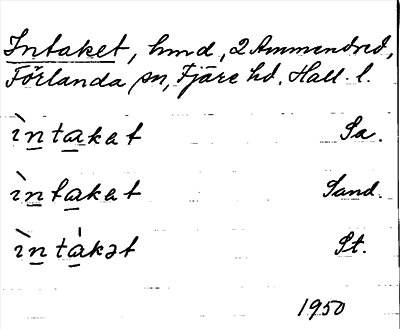 Intaket, hmd, 2 Ammendred,
Förlanda sn, Fjäre hd. Hall. l.
ìntakat Sa.
ìntakat Sand.
ìntàkət St.
1950